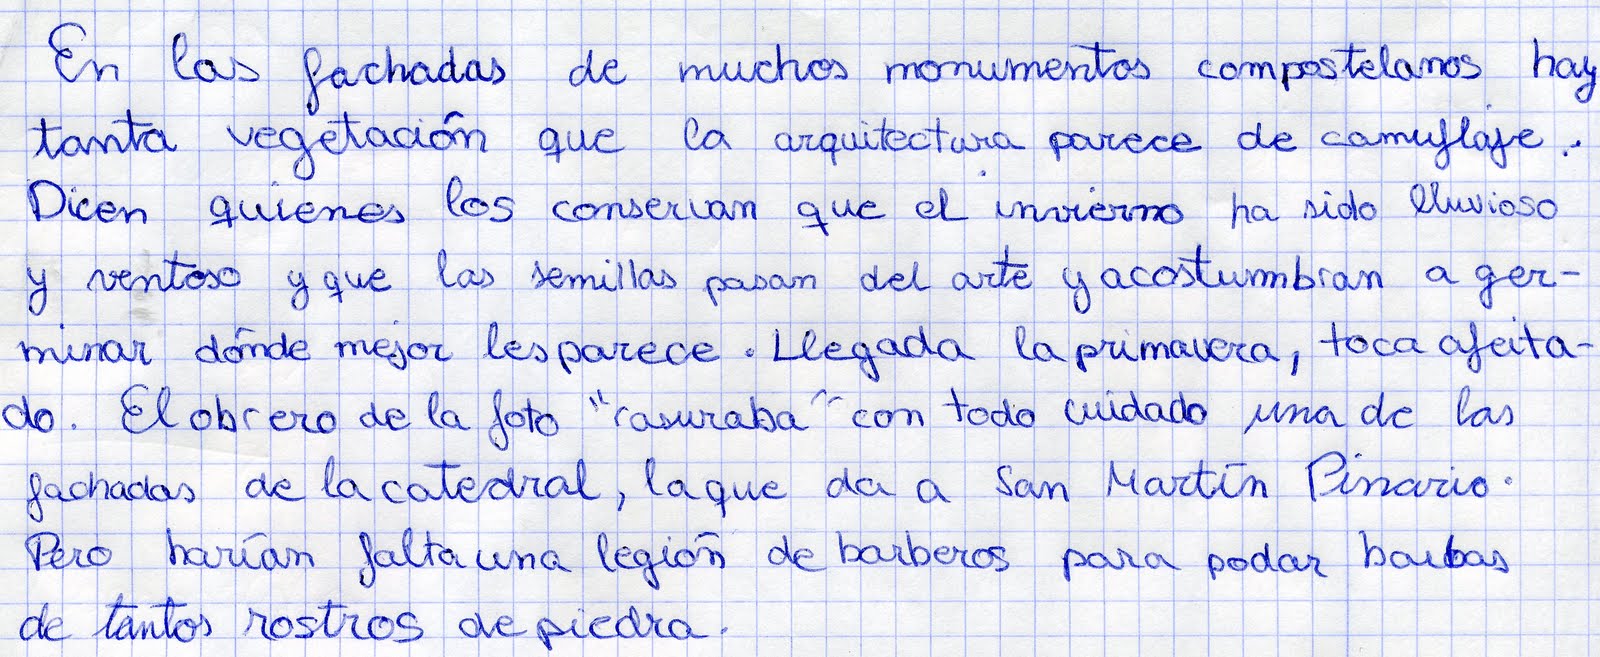 En las fachadas de muchos monumentos compostelanos hay
tanta vegetación que la arquitectura parece de camuflaje.
Dicen quienes los conservan que el invierno ha sido lluvioso
y ventoso y que las semillas pasan del arte y acostumbran a ger-
minar dónde mejor les parece. Llegada la primavera, toca afeita-
do. El obrero de la foto "rasuraba" con todo cuidado una de las
fachadas de la catedral, la que da a San Martín Pinario.
Pero harían falta una legión de barberos para podar barbas
de tantos rostros de piedra.